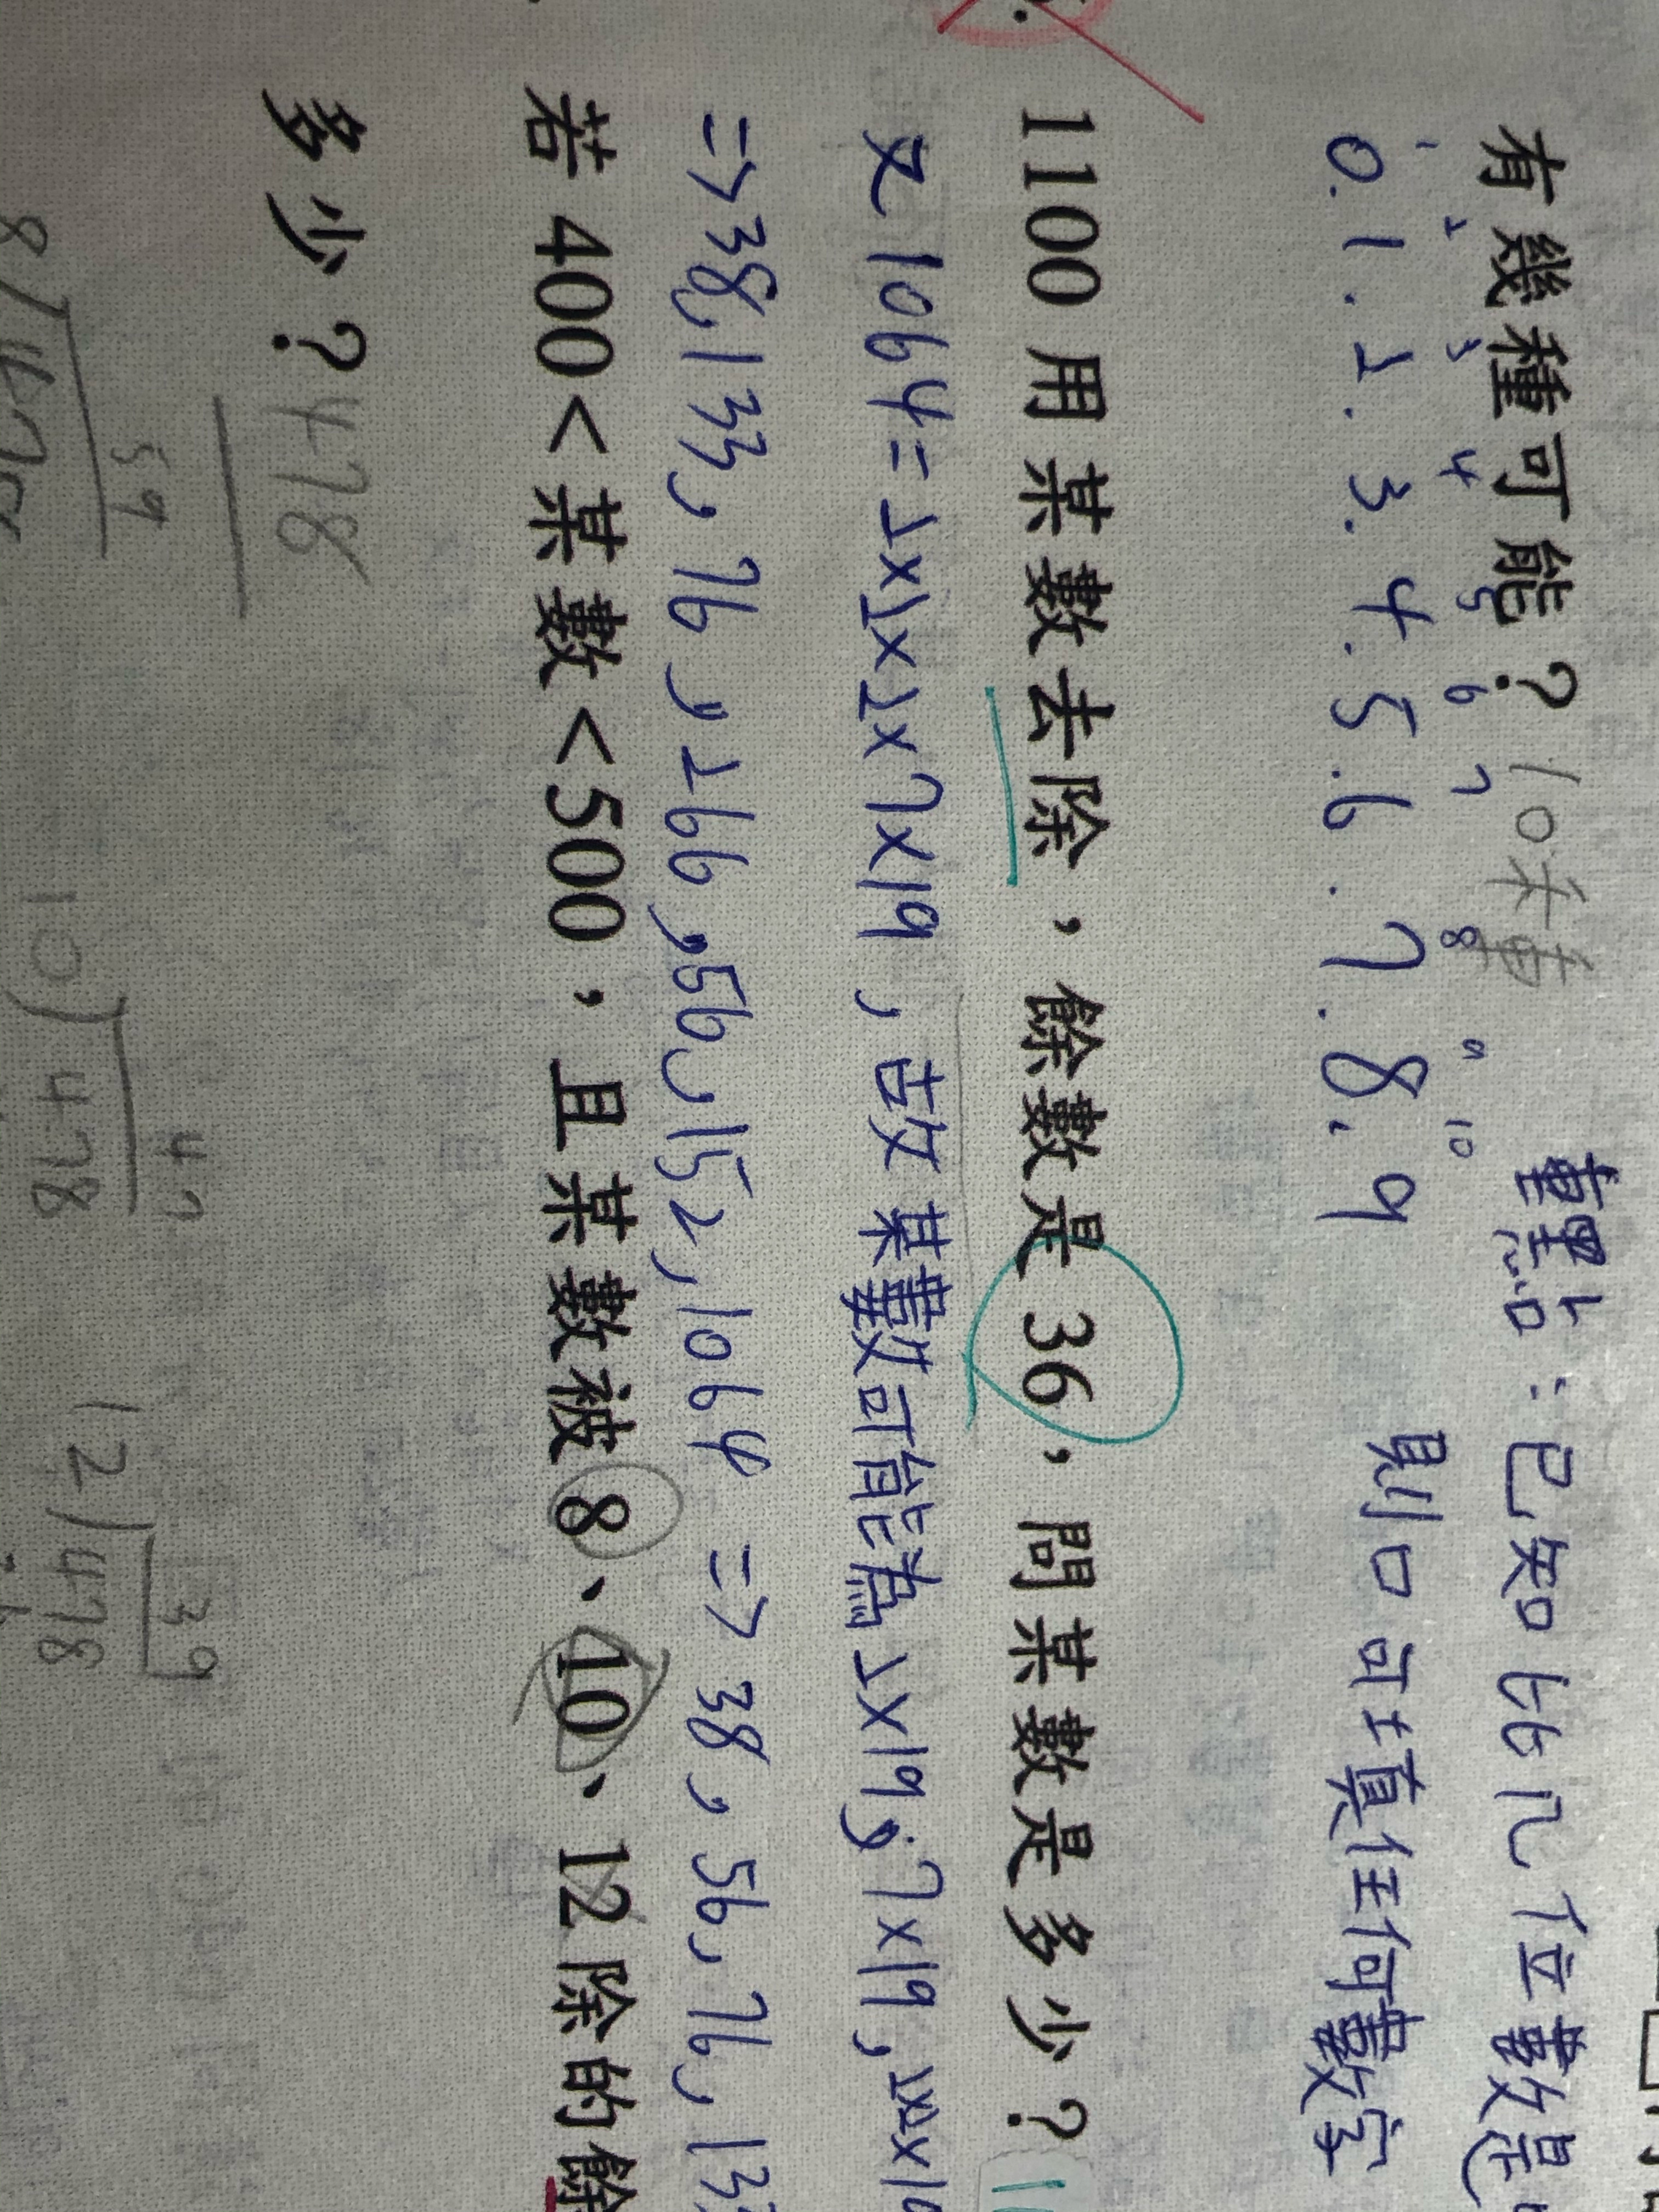 有幾種可能？10種 重點：已知比几位數是
1 2 3 4 5 6 7 8 9 10
0.1.2.3.4.5.6.7.8.9 則口可填任何數字
1100用某數去除，餘數是36，問某數是多少？
又1064=2×2×2×7×19，故某數可能為2×19；7×19，2×2×19
=>38，133，76，266，56，152，1064 => 38，56，76，133
若400<某數<500，且某數被8、10、12除的餘
多少？478
59
8
47
10 478
39
12 478